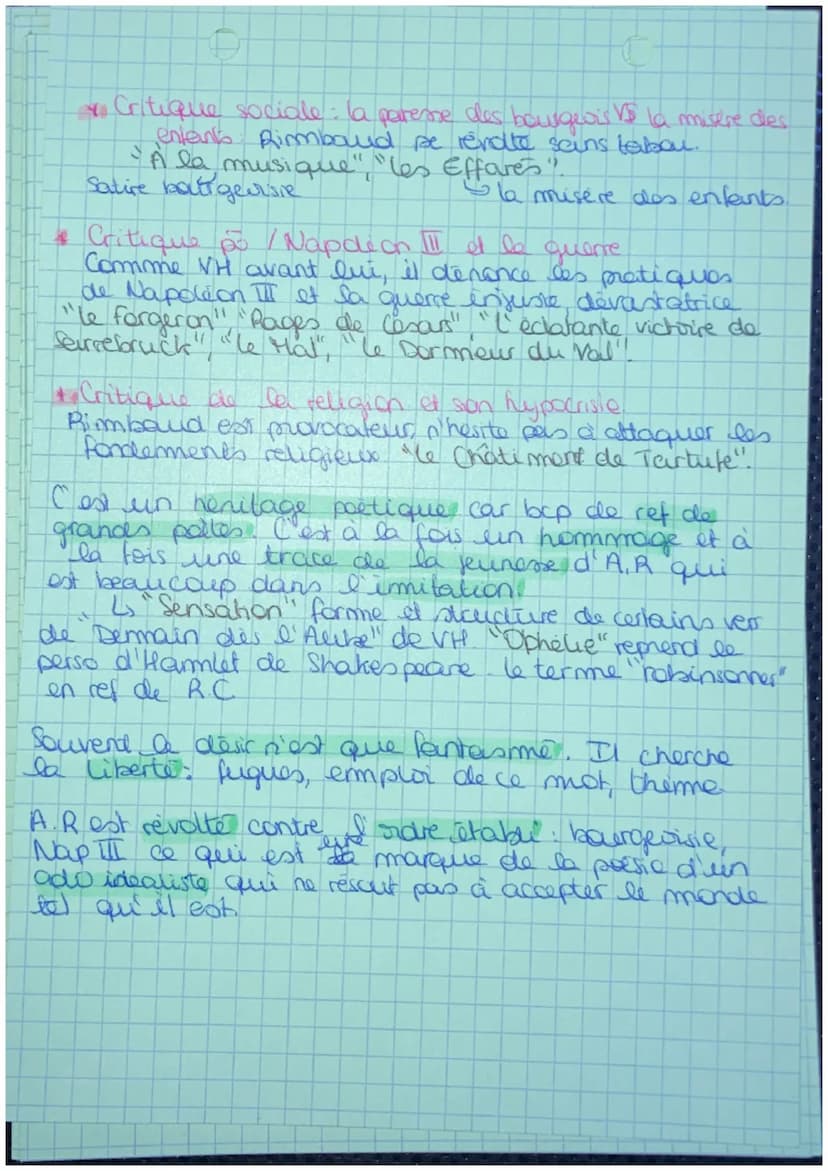 * Critique sociale : la paresse des bourgeois VS la misère des
enfants. Rimbaud se révolte sans tabou.
"À la musique", "les Effarés".
Satire bourgeoisie ↳ la misère des enfants
* Critique po / Napoléon III et la guerre
Comme VH avant lui, il dénonce les pratiques
de Napoléon III et la guerre injuste, dévastatrice
"le forgeron", "Rages de Césars", "L'éclatante victoire de
Sarrebruck", "le Mal", "le Dormeur du Val".
* Critique de la religion et son hypocrisie
Rimbaud est provocateur, n'hésite pas à attaquer les
fondements religieux "le Châtiment de Tartufe".
C'est un héritage poétique car bcp de ref de
grands poètes. C'est à la fois un hommage et à
la fois une trace de la jeunesse d'A.R qui
est beaucoup dans l'imitation.
↳ "Sensation" forme et structure de certains vers
de "Demain dès l'Aube" de VH. "Ophélie" reprend le
perso d'Hamlet de Shakespeare. le terme "robinsonner"
en ref de R.C
Souvent ce désir n'est que fantasmé. Il cherche
la liberté : fugues, emploi de ce mot, thème
A.R est révolté contre l'ordre établi : bourgeoisie,
Nap III ce qui est une marque de la poésie d'un
ado idéaliste qui ne résout pas à accepter le monde
tel qu'il est.